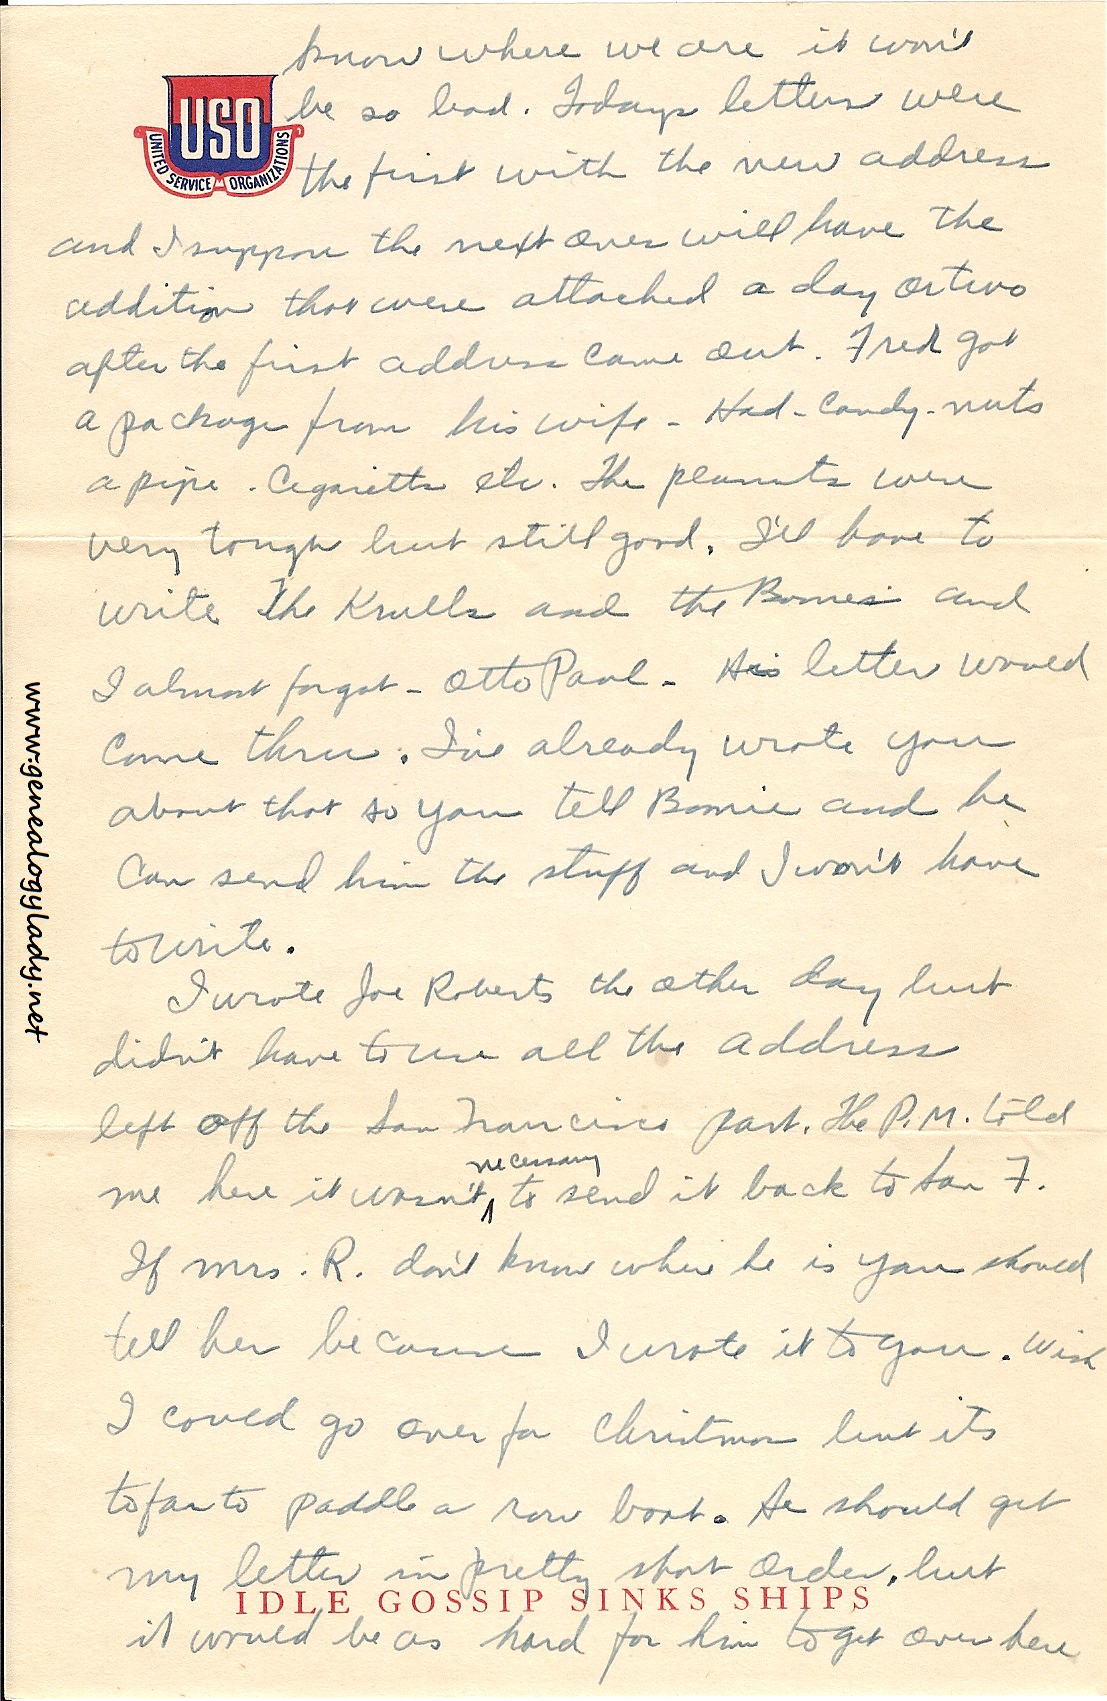 know where we are it won't
USO
UNITED SERVICE ORGANIZATIONS
be so bad. Todays letters were
the first with the new address
and I suppose the next ones will have the
addition that were attached a day or two
after the first address came out. Fred got
a package from his wife - Had - Candy - nuts
a pipe - Cigaretts etc. The peanuts were
very tough but still good. I'll have to
write The Krulls and the Bomies and
I almost forgot - Otto Paul - His letter would
Come thru. I've already wrote you
about that so you tell Bomie and he
Can send him the stuff and I won't have
to write.
I wrote Joe Roberts the other day but
didn't have to use all the address
left off the San Francisco part. The P.M. told
me here it wasn't necessary to send it back to San F.
If Mrs. R. don't know where he is you should
tell her because I wrote it to you. Wish
I could go over for Christmas but its
to far to paddle a row boat. He should get
my letter in pretty short order, but
IDLE GOSSIP SINKS SHIPS
it would be as hard for him to get over here
www.genealogylady.net